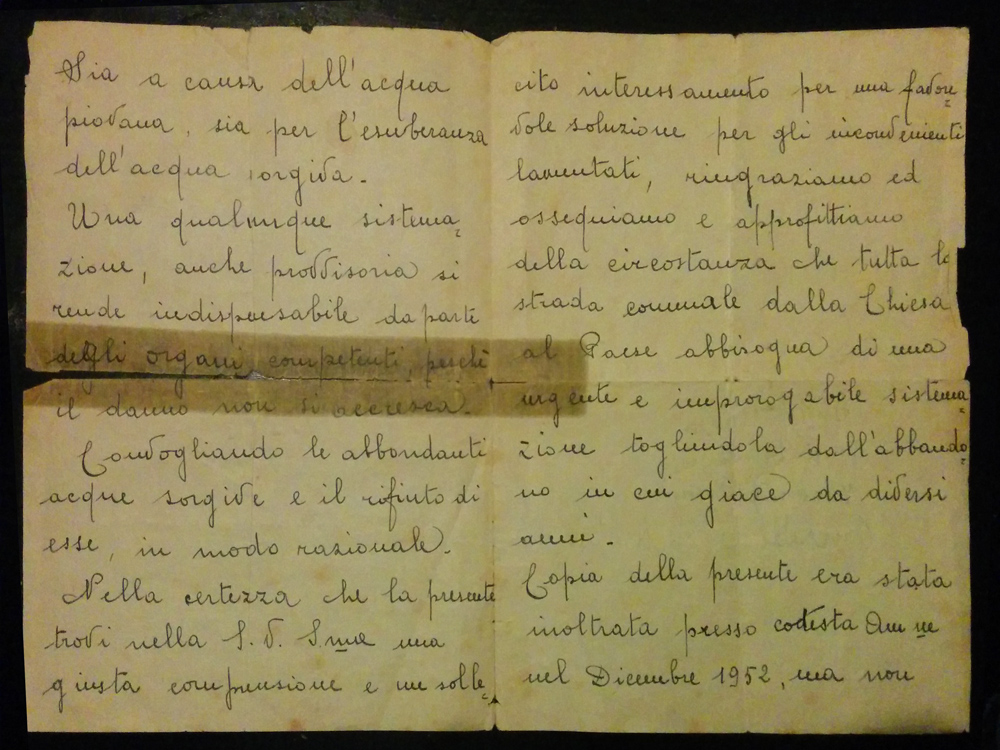 Sia a causa dell'acqua
piovana, sia per l'esuberanza
dell'acqua sorgiva.
Una qualunque sistema=
zione, anche provvisoria si
rende indispensabile da parte
degli organi competenti, perché
il danno non si accresca.
Convogliando le abbondanti
acque sorgive e il rifiuto di
esse, in modo razionale.
Nella certezza che la presente
trovi nella S. V. Ill.ma una
giusta comprensione e un solle=
cito interessamento per una favore=
vole soluzione per gli inconvenienti
lamentati, ringraziamo ed
ossequiamo e approfittiamo
della circostanza che tutta la
strada comunale dalla Chiesa
al Paese abbisogna di una
urgente e improrogabile sistema=
zione togliendola dall'abbando=
no in cui giace da diversi
anni.
Copia della presente era stata
inoltrata presso codesta Amm.ne
nel Dicembre 1952, ma non